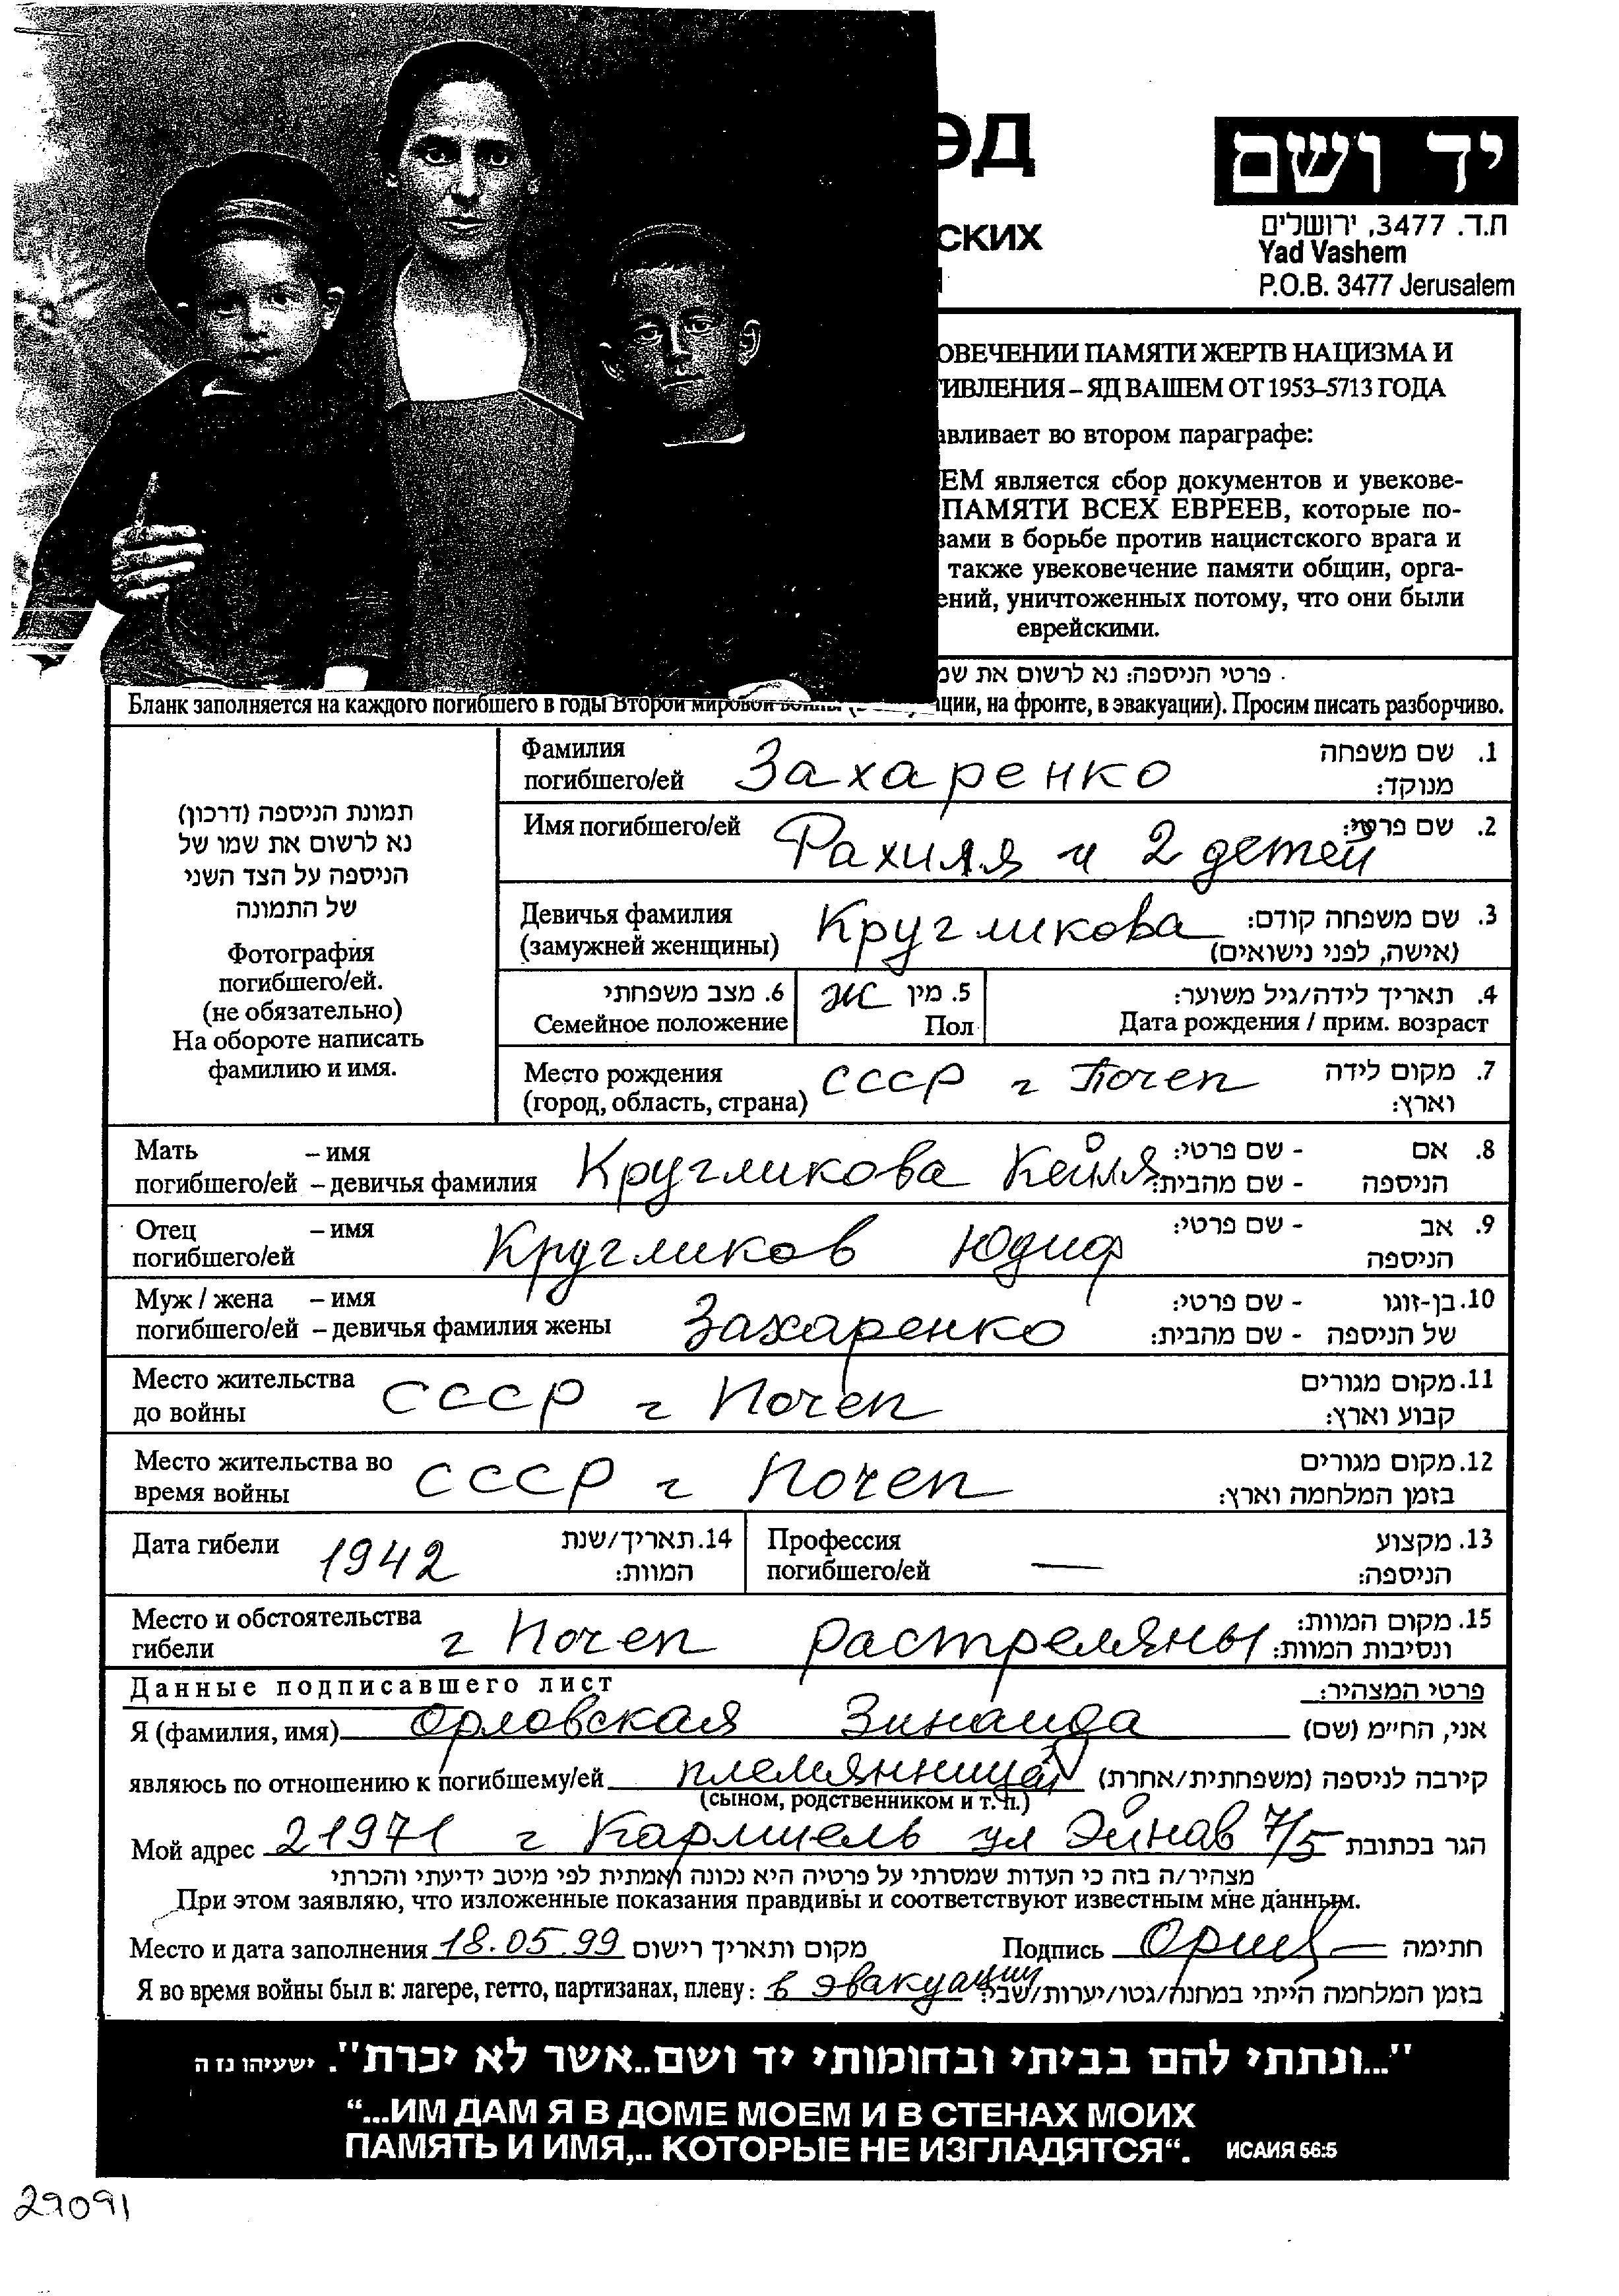 ЭД
יד ושם
ת.ד. 3477, ירושלים
Yad Vashem
P.O.B. 3477 Jerusalem
СКИХ
ОВЕЧЕНИИ ПАМЯТИ ЖЕРТВ НАЦИЗМА И
ИВЛЕНИЯ – ЯД ВАШЕМ ОТ 1953–5713 ГОДА
авливает во втором параграфе:
ЕМ является сбор документов и увекове-
ПАМЯТИ ВСЕХ ЕВРЕЕВ, которые по-
вами в борьбе против нацистского врага и
также увековечение памяти общин, орга-
ений, уничтоженных потому, что они были
еврейскими.
פרטי הניספה: נא לרשום את שמ
Бланк заполняется на каждого погибшего в годы Второй мировой войны ации, на фронте, в эвакуации). Просим писать разборчиво.
תמונת הניספה (דרכון)
נא לרשום את שמו של
הניספה על הצד השני
של התמונה
Фотография
погибшего/ей.
(не обязательно)
На обороте написать
фамилию и имя.
Фамилия שם משפחה .1
погибшего/ей Захаренко מנוקד:
Имя погибшего/ей Рахиля и 2 детей שם פרטי: .2
Девичья фамилия Кругликова שם משפחה קודם: .3
(замужней женщины) (אישה, לפני נישואים)
6. מצב משפחתי ж 5. מין תאריך לידה/גיל משוער: .4
Семейное положение Пол Дата рождения / прим. возраст
Место рождения СССР г Почеп מקום לידה .7
(город, область, страна) וארץ:
Мать – имя Кругликова Кейля - שם פרטי: אם .8
погибшего/ей – девичья фамилия - שם מהבית: הניספה
Отец – имя Кругликов Юдиф - שם פרטי: אב .9
погибшего/ей הניספה
Муж / жена – имя Захаренко - שם פרטי: בן-זוגו .10
погибшего/ей – девичья фамилия жены - שם מהבית: של הניספה
Место жительства СССР г Почеп מקום מגורים .11
до войны קבוע וארץ:
Место жительства во СССР г Почеп מקום מגורים .12
время войны בזמן המלחמה וארץ:
Дата гибели 1942 14. תאריך/שנת Профессия — מקצוע .13
המוות: погибшего/ей הניספה:
Место и обстоятельства г Почеп растреляны מקום המוות: .15
гибели ונסיבות המוות:
Данные подписавшего лист פרטי המצהיר:
Я (фамилия, имя) Орловская Зинаида אני, החי״מ (שם)
являюсь по отношению к погибшему/ей племянницей קירבה לניספה (משפחתית/אחרת)
(сыном, родственником и т. п.)
Мой адрес 21971 г Кармиель ул Эйнав 7/5 הגר בכתובת
מצהיר/ה בזה כי העדות שמסרתי על פרטיה היא נכונה ואמתית לפי מיטב ידיעתי והכרתי
При этом заявляю, что изложенные показания правдивы и соответствуют известным мне данным.
Место и дата заполнения 18.05.99 מקום ותאריך רישום Подпись חתימה
Я во время войны был в: лагере, гетто, партизанах, плену: в эвакуации בזמן המלחמה הייתי במחנה/גטו/יערות/שבי:
"...ונתתי להם בביתי ובחומותי יד ושם..אשר לא יכרת". ישעיהו נז ה
“...ИМ ДАМ Я В ДОМЕ МОЕМ И В СТЕНАХ МОИХ
ПАМЯТЬ И ИМЯ,.. КОТОРЫЕ НЕ ИЗГЛАДЯТСЯ“. ИСАИЯ 56:5
29091